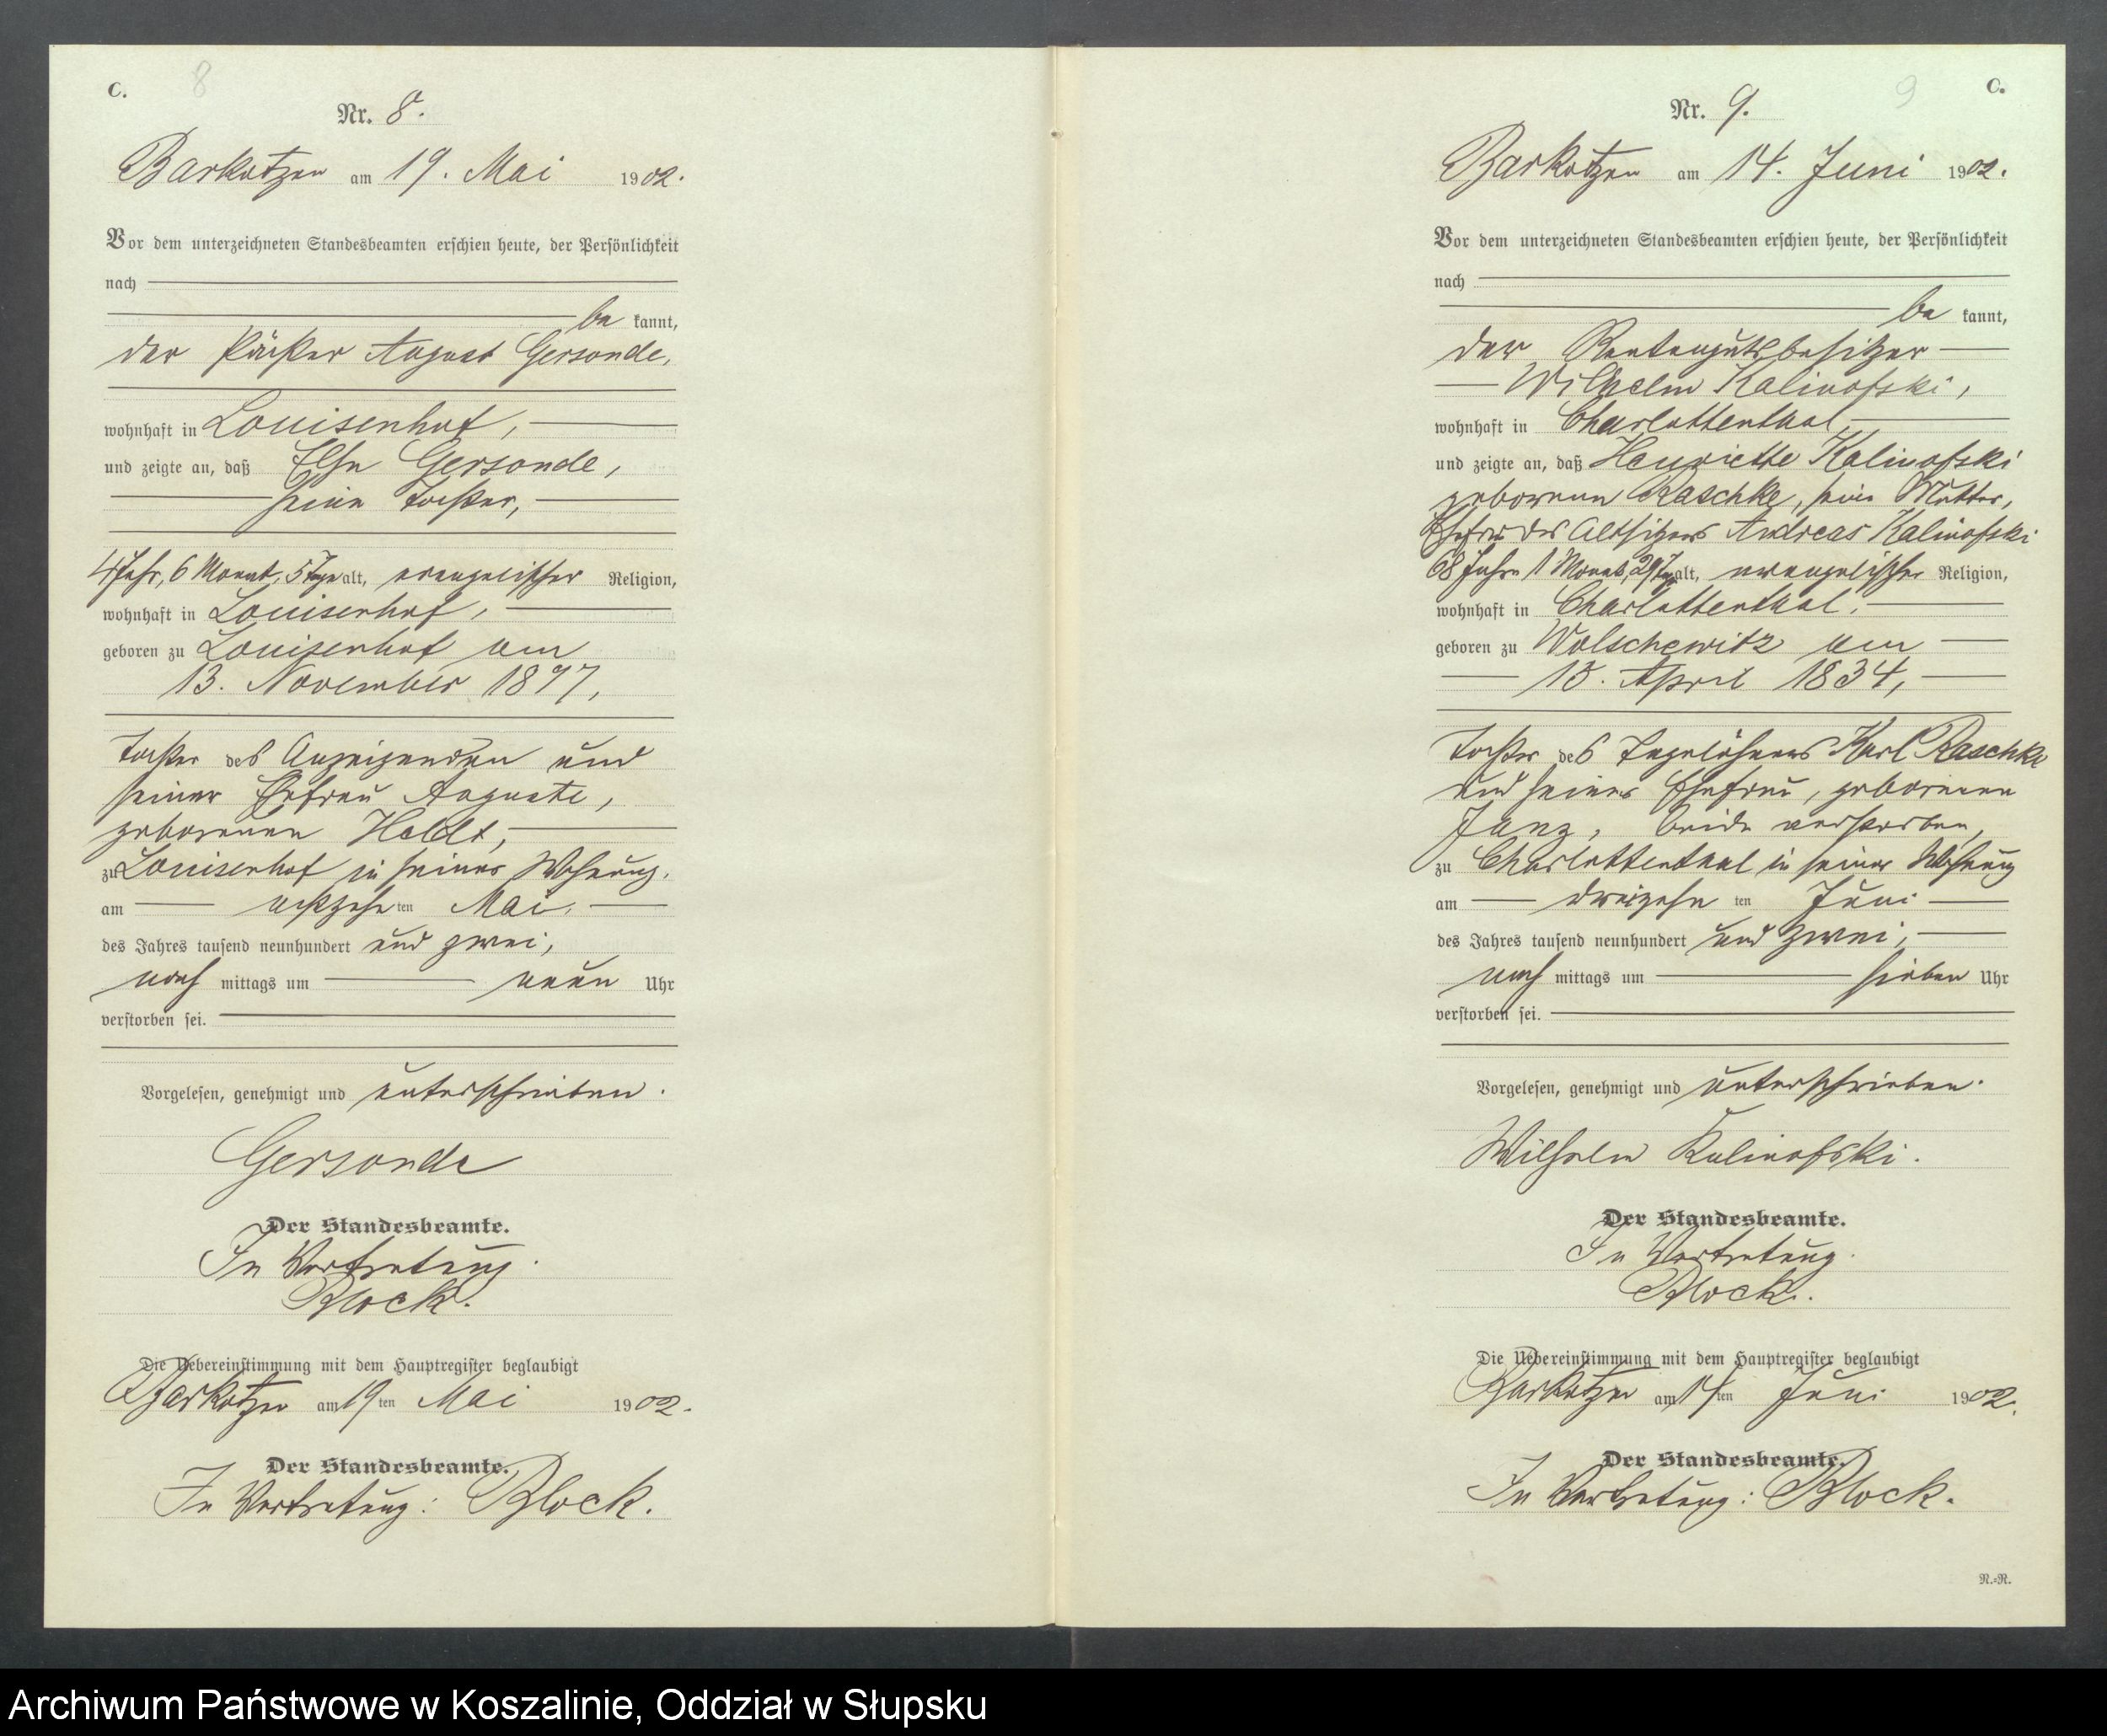 C. 8
Nr. 8.
Barkotzen am 19. Mai 1902.
Vor dem unterzeichneten Standesbeamten erschien heute, der Persönlichkeit
nach
be kannt,
der Pächter August Gersonde,
wohnhaft in Louisenhof,
und zeigte an, daß Else Gersonde,
seine Tochter,
4 Jahr, 6 Monat, 5 Tage alt, evangelischer Religion,
wohnhaft in Louisenhof,
geboren zu Louisenhof am
13. November 1897,
Tochter des Anzeigenden und
seiner Ehefrau Auguste,
geborenen Holdt,
zu Louisenhof in seiner Wohnung,
am achtzehnten Mai,
des Jahres tausend neunhundert und zwei,
nach mittags um neun Uhr
verstorben sei.
Vorgelesen, genehmigt und unterschrieben.
Gersonde
Der Standesbeamte.
In Vertretung.
Block.
Die Uebereinstimmung mit dem Hauptregister beglaubigt
Barkotzen am 19ten Mai 1902.
Der Standesbeamte.
In Vertretung: Block.
9 C.
Nr. 9.
Barkotzen am 14. Juni 1902.
Vor dem unterzeichneten Standesbeamten erschien heute, der Persönlichkeit
nach
be kannt,
der Rentengutsbesitzer
Wilhelm Kalinofski,
wohnhaft in Charlottenthal,
und zeigte an, daß Henriette Kalinofski
geborenen Raschke, seine Mutter,
Ehefrau des Altsitzers Andreas Kalinofski
68 Jahre 1 Monat, 29 Tg alt, evangelischer Religion,
wohnhaft in Charlottenthal,
geboren zu Wolschewitz am
15. April 1834,
Tochter des Tagelöhners Karl Raschke
und seiner Ehefrau, geborenen
Janz, beide verstorben,
zu Charlottenthal in seiner Wohnung
am dreizehnten Juni
des Jahres tausend neunhundert und zwei,
nach mittags um sieben Uhr
verstorben sei.
Vorgelesen, genehmigt und unterschrieben.
Wilhelm Kalinofski.
Der Standesbeamte.
In Vertretung.
Block.
Die Uebereinstimmung mit dem Hauptregister beglaubigt
Barkotzen am 14ten Juni 1902.
Der Standesbeamte.
In Vertretung: Block.
R.=R.
Archiwum Państwowe w Koszalinie, Oddział w Słupsku